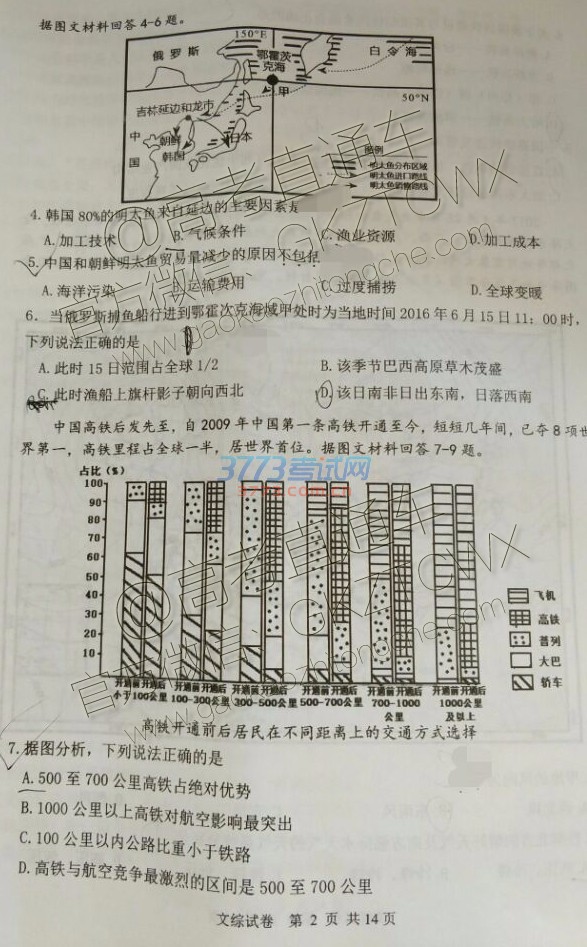 据图文材料回答4-6题。
150°E
俄罗斯
鄂霍茨克海
白令海
甲
50°N
吉林延边和龙市
中国
朝鲜
韩国
日本
图例
明太鱼分布区域
明太鱼进口路线
明太鱼销售路线
4.韩国80%的明太鱼来自延边的主要因素是
A.加工技术 B.气候条件 C.渔业资源 D.加工成本
5.中国和朝鲜明太鱼贸易量减少的原因不包括
A.海洋污染 B.运输费用 C.过度捕捞 D.全球变暖
6.当俄罗斯捕鱼船行进到鄂霍次克海域甲处时为当地时间2016年6月15日11:00时,
下列说法正确的是
A.此时15日范围占全球1/2 B.该季节巴西高原草木茂盛
C.此时渔船上旗杆影子朝向西北 D.该日南非日出东南,日落西南
中国高铁后发先至,自2009年中国第一条高铁开通至今,短短几年间,已夺8项世
界第一,高铁里程占全球一半,居世界首位。据图文材料回答7-9题。
占比(%)
100
90
80
70
60
50
40
30
20
10
飞机
高铁
普列
大巴
轿车
开通前 开通后 开通前 开通后 开通前 开通后 开通前 开通后 开通前 开通后 开通前 开通后
小于100公里 100-300公里 300-500公里 500-700公里 700-1000公里 1000公里及以上
高铁开通前后居民在不同距离上的交通方式选择
7.据图分析,下列说法正确的是
A.500至700公里高铁占绝对优势
B.1000公里以上高铁对航空影响最突出
C.100公里以内公路比重小于铁路
D.高铁与航空竞争最激烈的区间是500至700公里
文综试卷 第2页共14页
@高考直通车
GKZTCWX
官方微信
www.gaokaozhitongche.com
@高考直通车
GKZTCWX
官方微信
www.gaokaozhitongche.com
3773考试网
3773.com.cn